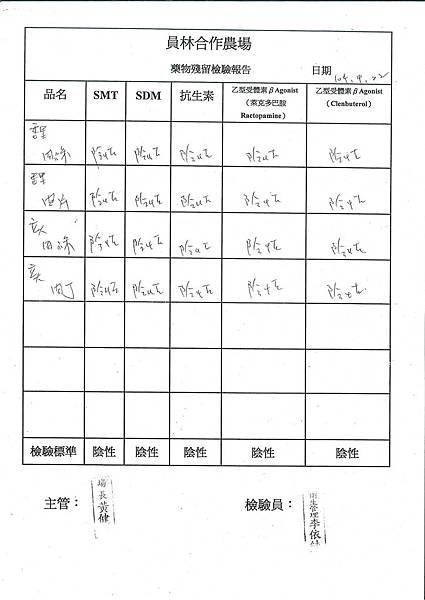 員林合作農場
藥物殘留檢驗報告
日期 104.9.22
品名 SMT SDM 抗生素 乙型受體素βAgonist (萊克多巴胺 Ractopamine) 乙型受體素βAgonist (Clenbuterol)
肉絲 陰性 陰性 陰性 陰性 陰性
肉片 陰性 陰性 陰性 陰性 陰性
肉絲 陰性 陰性 陰性 陰性 陰性
肉丁 陰性 陰性 陰性 陰性 陰性
檢驗標準 陰性 陰性 陰性 陰性 陰性
主管： 場長黃健
檢驗員： 衛生管理李依